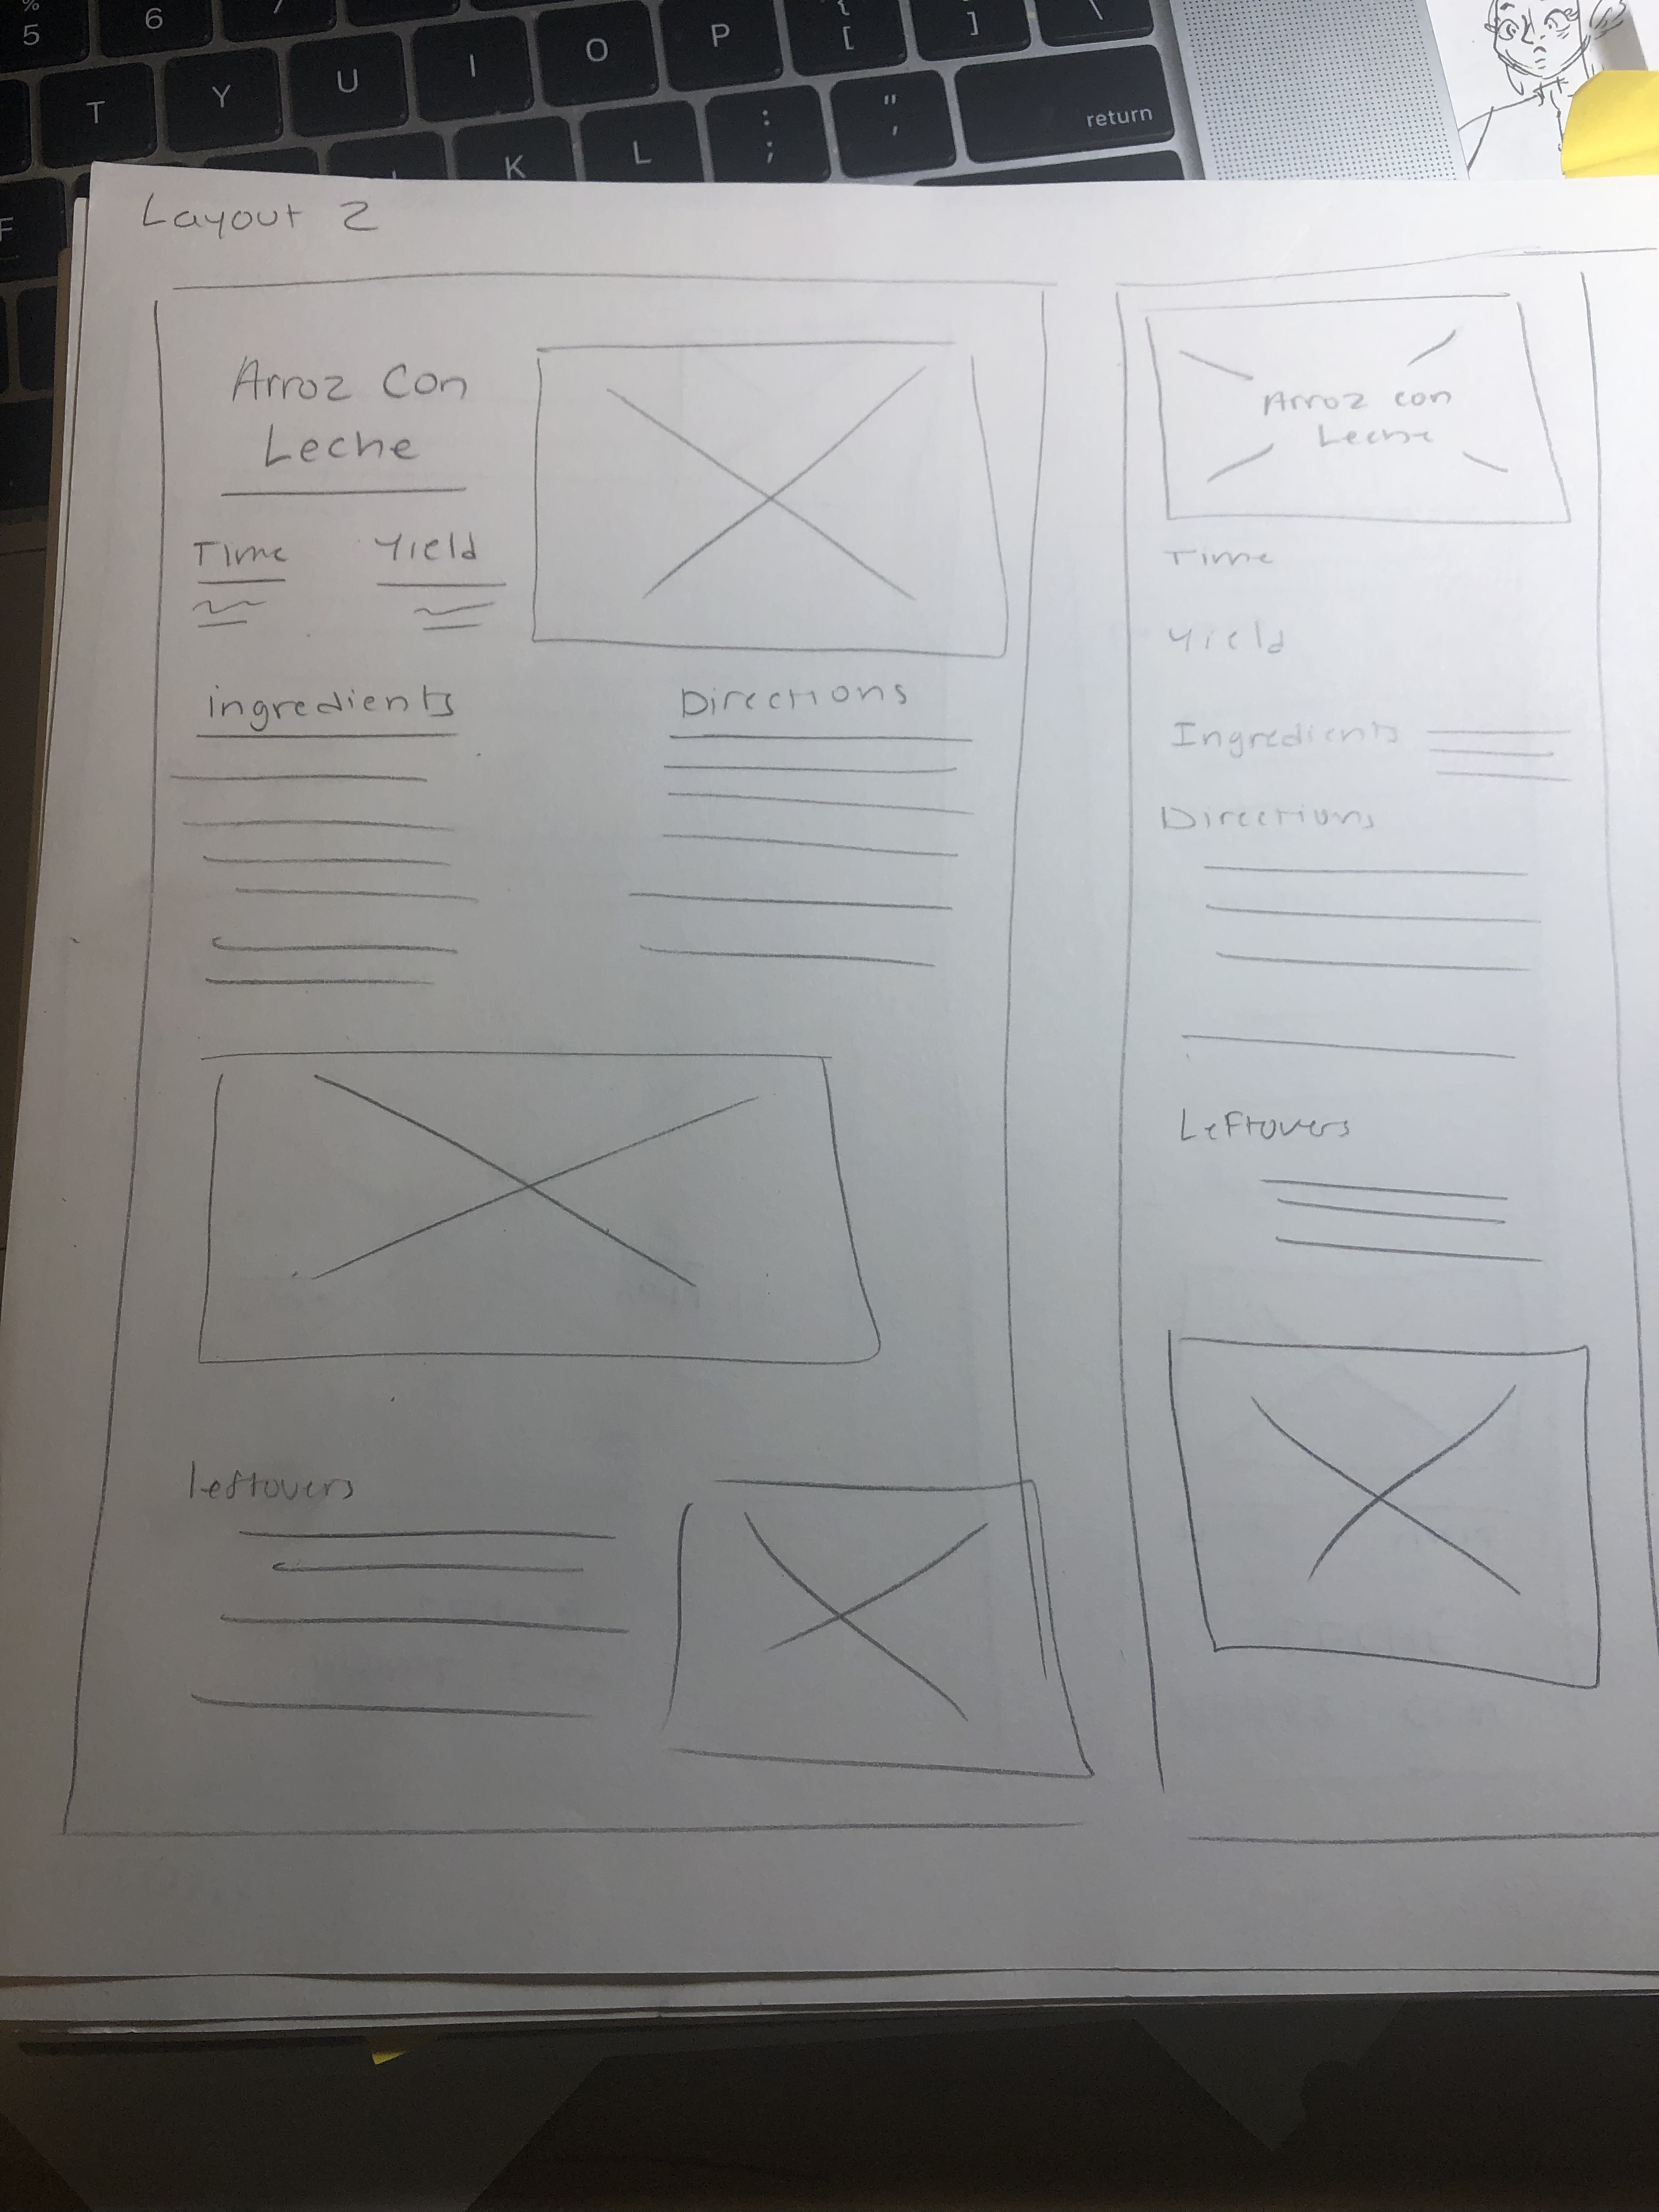 %
5
6
T
Y
U
I
O
P
{
[
]
\
F
K
L
:
;
"
'
return
Layout 2
Arroz Con
Leche
Time Yield
ingredients Directions
leftovers
Arroz con
Leche
Time
Yield
Ingredients
Directions
Leftovers